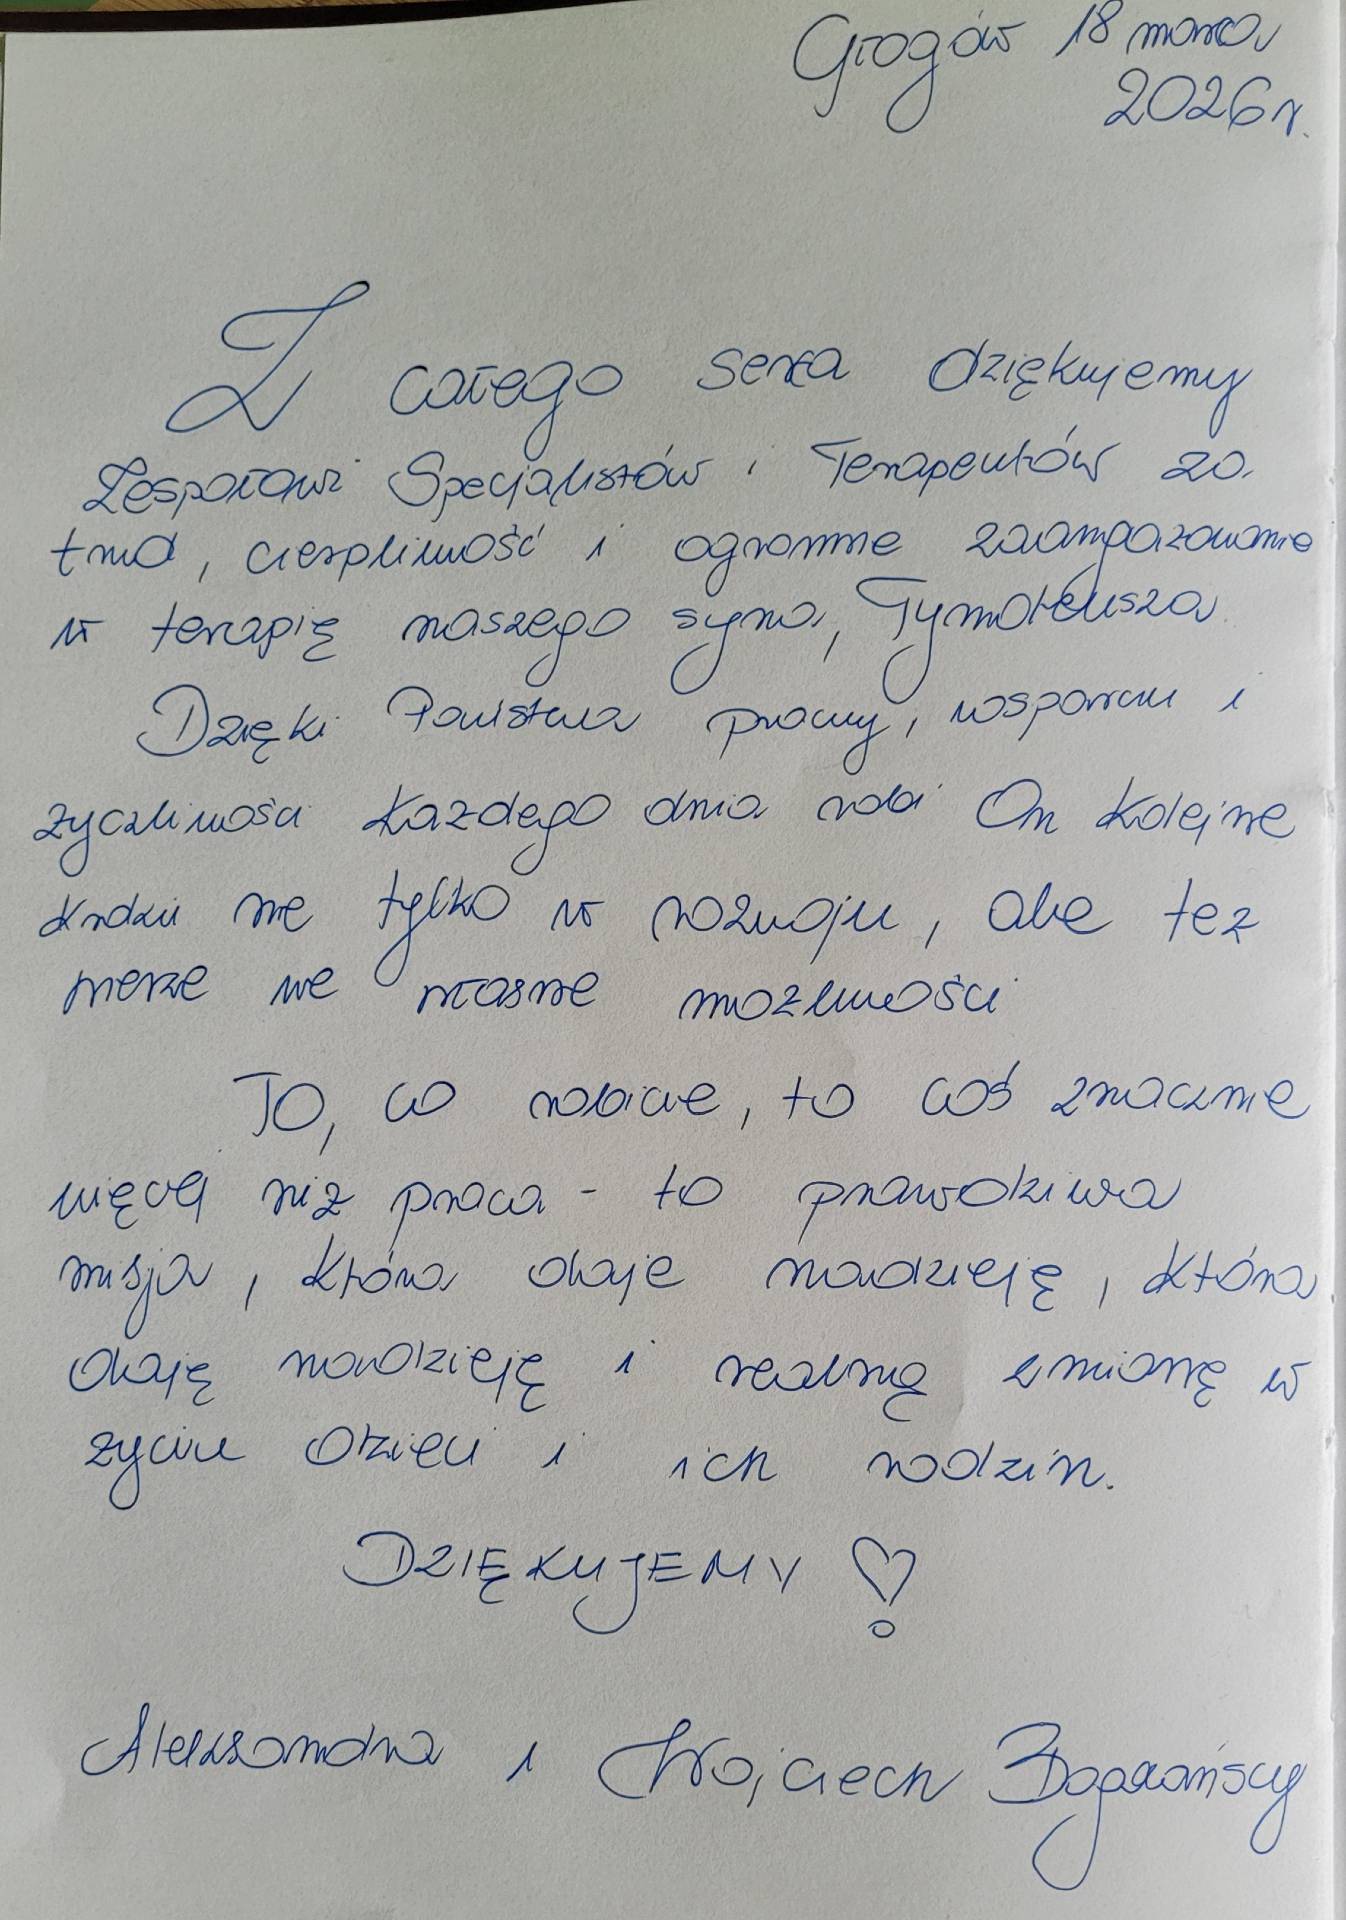 Głogów 18 marca
2026 r.
Z całego serca dziękujemy
Zespołowi Specjalistów i Terapeutów za
trud, cierpliwość i ogromne zaangażowanie
w terapię naszego syna, Tymoteusza.
Dzięki Państwa pracy, wsparciu i
życzliwości każdego dnia robi On kolejne
kroki nie tylko w rozwoju, ale też
wierze we własne możliwości
To, co robicie, to coś znacznie
więcej niż praca - to prawdziwa
misja, która daje nadzieję, która
daję nadzieję i realną zmianę w
życiu dzieci i ich rodzin.
DZIĘKUJEMY
Aleksandra i Wojciech